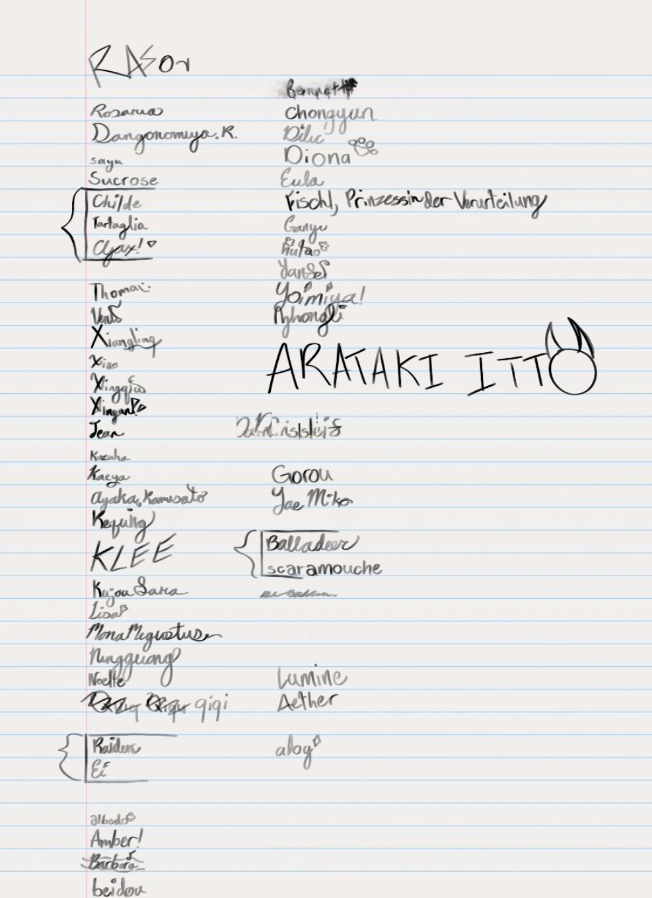 RASOr
Rosaria
Dangonomiya.R.
sayu
Sucrose
Childe
Tartaglia
Ajax!
Thoma
Venti
Xiangling
Xiao
Xingqiu
Xinyan
Jean
Kazuha
Kaeya
Ayaka, Kamisato
Keqing
KLEE
Kujou Sara
Lisa
Mona Megustus
Ningguang
Noelle
qiqi
Raiden
Ei
albedo
Amber!
Barbara
beidou
Bennett
Chongyun
Diluc
Diona
Eula
Fischl, Prinzessin der Verurteilung
Ganyu
Hutao
Yanfei
Yoimiya!
Zhongli
ARATAKI ITTO
Gorou
Yae Miko
Balladeer
scaramouche
Lumine
Aether
aloy